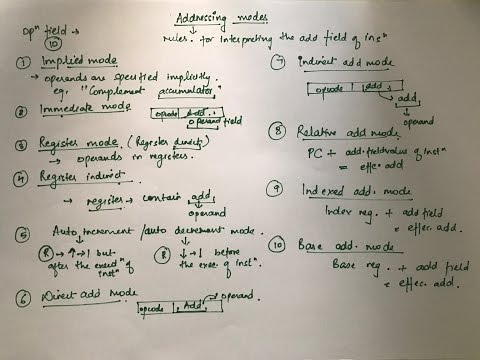 Addressing modes
opⁿ field →
⑩
→ rules for interpreting the add field of instⁿ
① Implied mode
→ operands are specified implicitly.
eg. "Complement accumulator"
② Immediate mode
opcode Add.
operand field
③ Register mode (Register direct)
→ operands in registers.
④ Register indirect.
→ register → contain add.
operand
⑤ Auto increment / auto decrement mode.
R → ↑ → 1 but
after the execⁿ of
instⁿ
R ↓ → 1 before
the exec. of instⁿ.
⑥ Direct add mode
opcode Add. → operand.
⑦ Indirect add mode
opcode add.
add.
operand
⑧ Relative add mode.
PC + add. field value of instⁿ
= effec. add
⑨ Indexed add. mode
Index reg. + add field
= effec. add.
⑩ Base add. mode
Base reg. + add field
= effec. add.